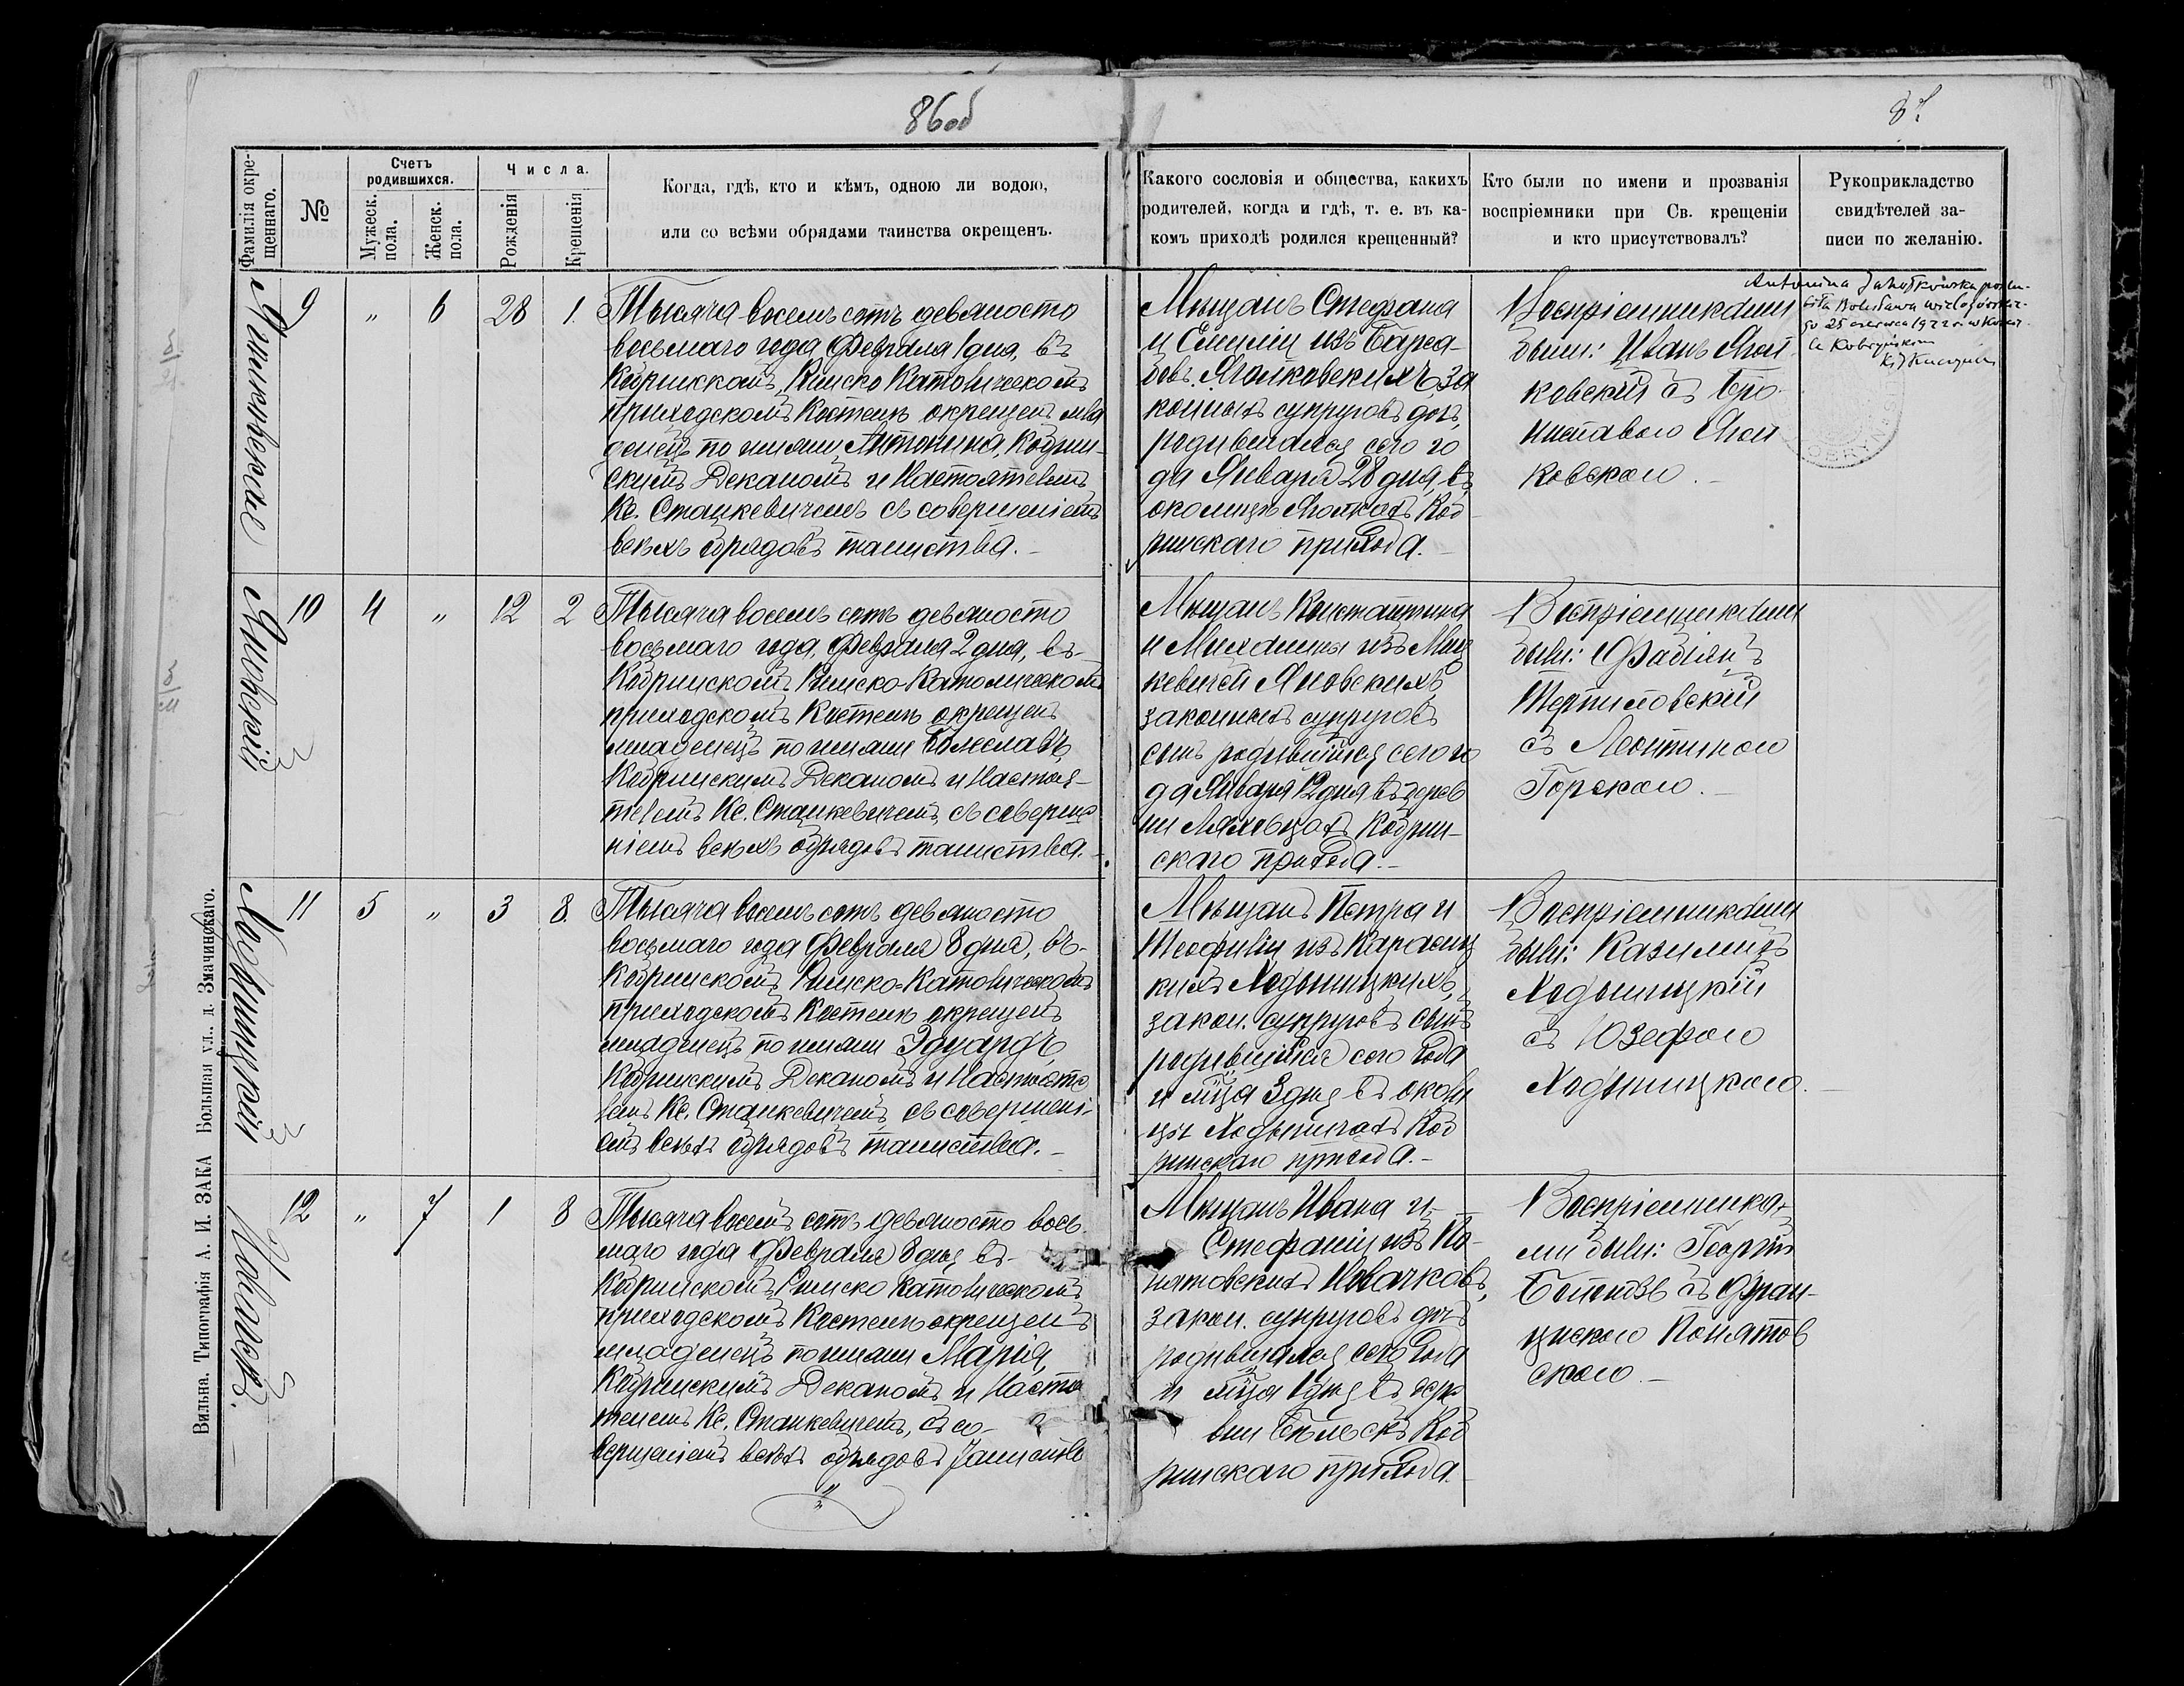 86об
87
Фамилія окре-
щеннаго.
№
Счетъ
родившихся.
Мужеск.
пола.
Женск.
пола.
Числа.
Рожденія
Крещенія
Когда, гдѣ, кто и кѣмъ, одною ли водою,
или со всѣми обрядами таинства окрещенъ.
Какого сословія и общества, какихъ
родителей, когда и гдѣ, т. е. въ ка-
комъ приходѣ родился крещенный?
Кто были по имени и прозванія
воспріемники при Св. крещеніи
и кто присутствовалъ?
Рукоприкладство
свидѣтелей за-
писи по желанію.
9 " 6 28 1.
Тысяча восемь сотъ девяносто
восьмаго года Февраля 1 дня, въ
Кобринскомъ Римско Католическомъ
приходскомъ Костелѣ окрещенъ мла
денецъ по имени Антонина, Кобрин-
скимъ Деканомъ и Настоятелемъ
Кс. Стацкевичемъ съ совершеніемъ
всѣхъ обрядовъ таинства.-
Мѣщанъ Стефана
и Емиліи изъ
Яголковскихъ за
конныхъ супруговъ дочь,
родившаяся сего го
да Января 28 дня, въ
околицѣ Ягелкахъ Коб
ринскаго прихода.-
Воспріемниками
были: Иванъ Ягол
ковскій съ Бро
ниславою Ягел
ковскою.-
Antonina Jahołkowska poślu-
biła Bolesława
go 25 czerwca 1922 r. w
le Kobryńskim
OBRYN
Яновскій
10 4 " 12 2
Тысяча восемь сотъ девяносто
восьмаго года, Февраля 2 дня, въ
Кобринскомъ Римско-Католическомъ
приходскомъ Костелѣ окрещенъ
младенецъ по имени Болеславъ,
Кобринскимъ Деканомъ и Настоя-
телемъ Кс. Стацкевичемъ, съ соверше
ніемъ всѣхъ обрядовъ таинства.-
Мѣщанъ Константина
и Михалины изъ Миц
кевичей Яновскихъ,
законныхъ супруговъ
сынъ родившійся сего го
да Января 12 дня въ дерев
ни Ляховцахъ Кобрин-
скаго прихода.-
Воспріемниками
были: Фабіянъ
Тертиловскій
съ Леонтиною
Горскою.-
Ходыницкій
11 5 " 3 8.
Тысяча восемь сотъ девяносто
восьмаго года Февраля 8 дня, въ-
Кобринскомъ Римско-Католическомъ
приходскомъ Костелѣ окрещенъ
младенецъ по имени Эдуардъ,
Кобринскимъ Деканомъ и Настояте
лемъ Кс. Стацкевичемъ, съ совершені-
емъ всѣхъ обрядовъ таинства.-
Мѣщанъ Петра и
Теофиліи изъ
кихъ Ходыницкихъ,
закон. супруговъ сынъ
родившійся сего года
и мца 3 дня въ околи
цы Ходыничахъ Коб
ринскаго прихода.-
Воспріемниками
были: Казиміръ
Ходыницкій
съ Юзефою
Ходыницкою.-
12 " 7 1 8
Тысяча восемь сотъ девяносто вось
маго года Февраля 8 дня въ-
Кобринскомъ Римско Католическомъ
приходскомъ Костелѣ окрещенъ
младенецъ по имени Марія,
Кобринскимъ Деканомъ и Настоя
телемъ Кс. Стацкевичемъ, съ со-
вершеніемъ всѣхъ обрядовъ Таинства
Мѣщанъ Ивана и
Стефаніи изъ По-
нятовскихъ Новачковъ,
закон. супруговъ дочь
родившаяся сего года
и мца 1 дня въ дере
вни Бѣлескъ Коб
ринскаго прихода.-
Воспріемника-
ми были: Георгій
съ Фран-
цискою Понятов
скою.-
Вильна. Типографія А. И. ЗАКА Большая ул., д. Змачинскаго.